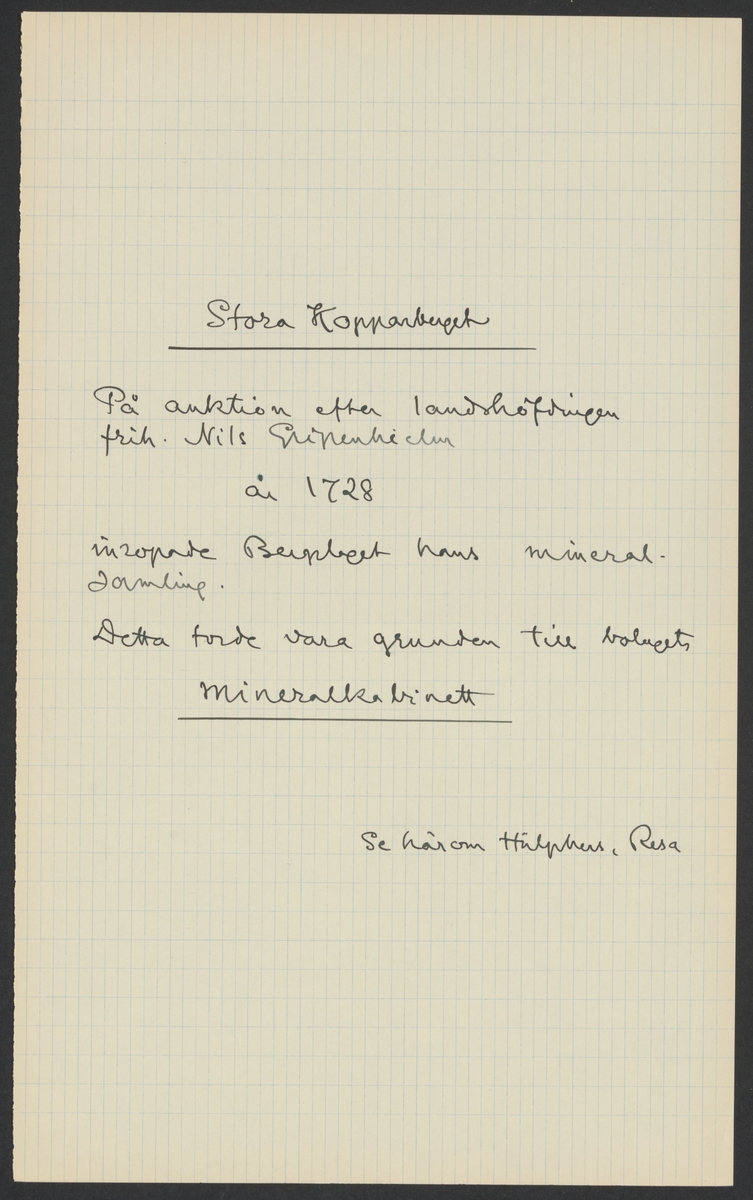 Stora Kopparberget
På auktion efter landshöfdingen
frih. Nils Gripenhielm
år 1728
inropade Bergslaget hans mineral-
samling.
Detta torde vara grunden till bolagets
Mineralkabinett
Se härom Hülphers, Resa